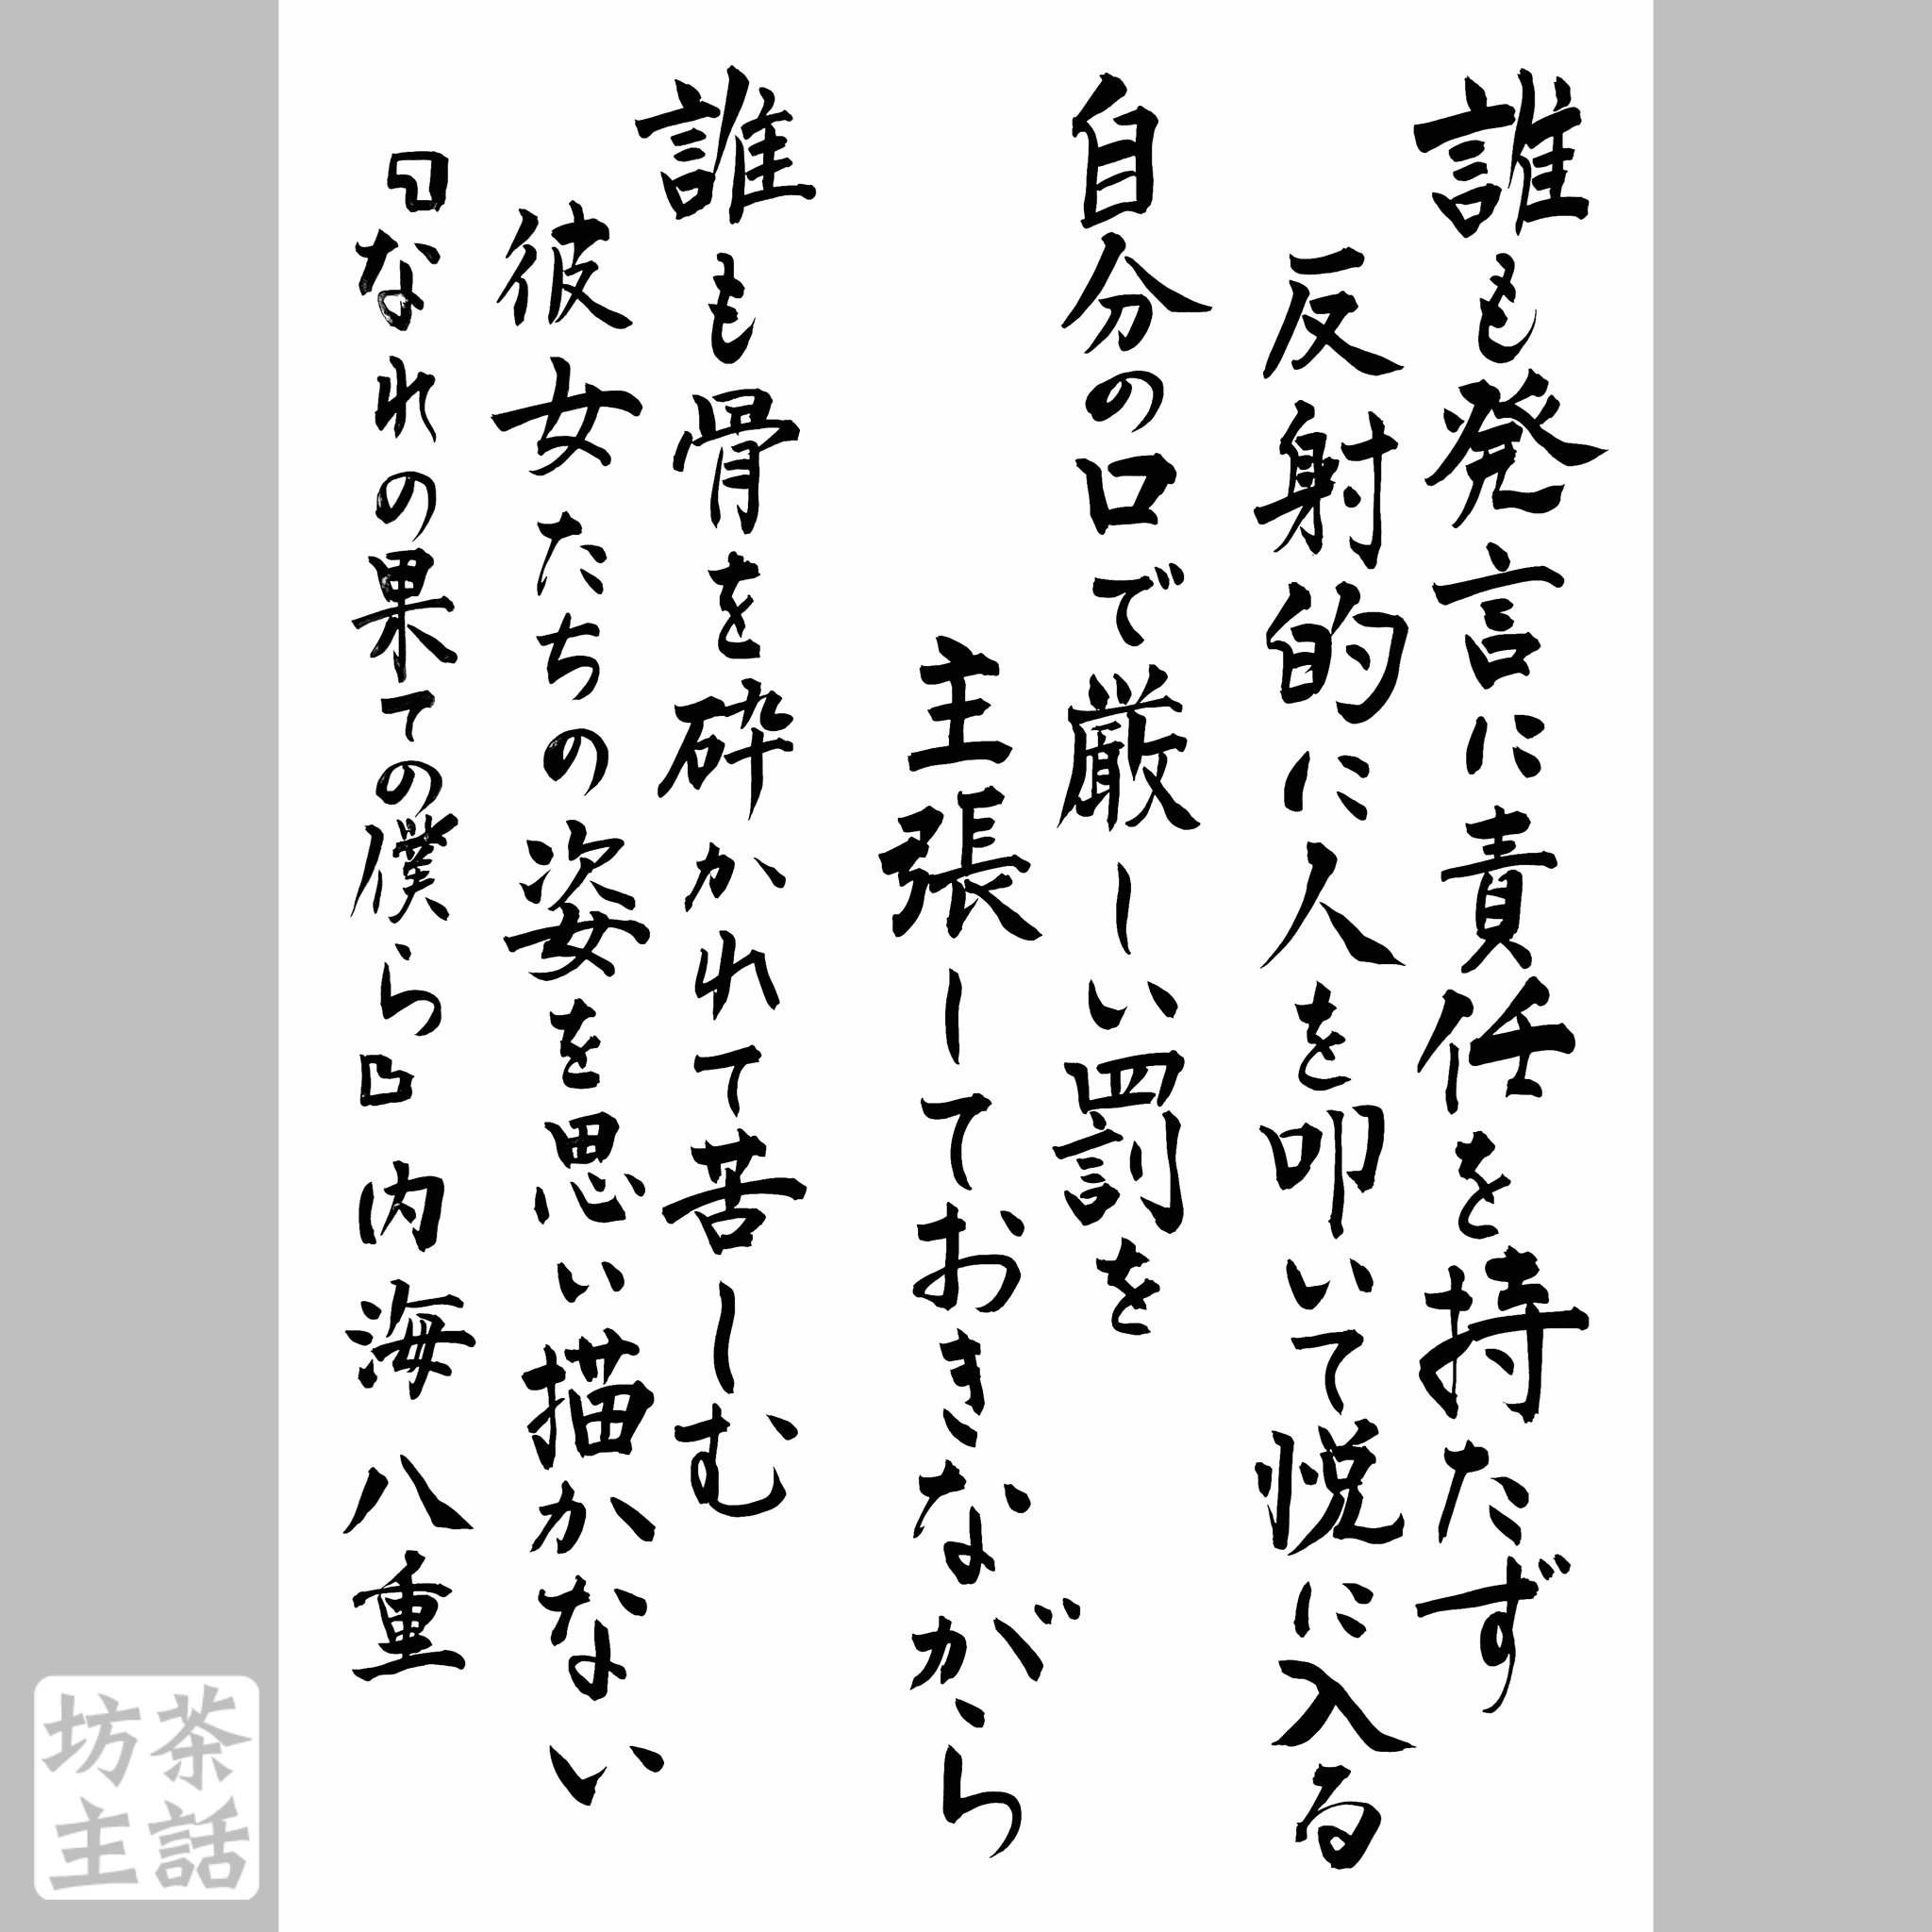 誰も発言に責任を持たず
反射的に人を叩いて悦に入る
自分の口で厳しい罰を
主張しておきながら
誰も骨を砕かれて苦しむ
彼女たちの姿を思い描かない
『なれの果ての僕ら』内海八重
茶話
坊主